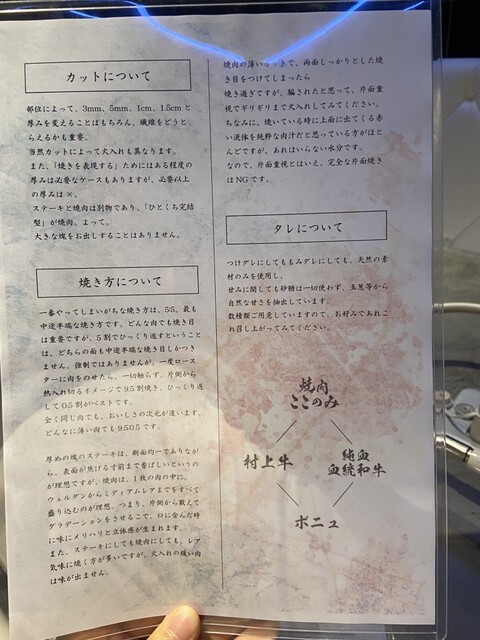 カットについて
部位によって、3mm、5mm、1cm、1.5cmと
厚みを変えることはもちろん、繊維をどうと
らえるかも重要。
当然カットによって火入れも異なります。
また、「焼きを表現する」ためにはある程度の
厚みは必要なケースもありますが、必要以上
の厚みは×。
ステーキと焼肉は別物であり、「ひとくち完結
型」が焼肉。よって、
大きな塊をお出しすることはありません。
焼き方について
一番やってしまいがちな焼き方は、5:5。最も
中途半端な焼き方です。どんな肉でも焼き目
は重要ですが、5割でひっくり返すということ
は、どちらの面も中途半端な焼き目しかつき
ません。強制ではありませんが、一度ロース
ターに肉をのせたら、一切触らず、片側から
熱入れ切るイメージで9.5割焼き、ひっくり返
して0.5割がベストです。
全く同じ肉でも、おいしさの次元が違います。
どんなに薄い肉でも9.5:0.5です。
厚めの塊のステーキは、断面均一でありなが
ら、表面が焦げる寸前まで香ばしいというの
が理想ですが、焼肉は、1枚の肉の中に、
ウェルダンからミディアムレアまでをすべて
盛り込むのが理想。つまり、片側から敢えて
グラデーションをさせることで、口に含んだ時
に味にメリハリと立体感が生まれます。
また、ステーキにしても焼肉にしても、レア
気味に焼く方が多いですが、火入れの緩い肉
は味が出ません。
焼肉の薄いカットで、両面しっかりとした焼
き目をつけてしまったら
焼き過ぎですが、騙されたと思って、片面重
視でギリギリまで火入れしてみてください。
ちなみに、焼いている時に上面に出てくる赤
い液体を純粋な肉汁だと思っている方がほと
んどですが、あれはいらない水分です。
なので、片面重視とはいえ、完全な片面焼き
はNGです。
タレについて
つけダレにしてももみダレにしても、天然の素
材のみを使用し、
甘みに関しても砂糖は一切使わず、玉葱等から
自然な甘さを抽出しています。
数種類ご用意していますので、お好みであれこ
れ召し上がってみてください。
焼肉
ここのみ
村上牛
純血
血統和牛
ボニュ